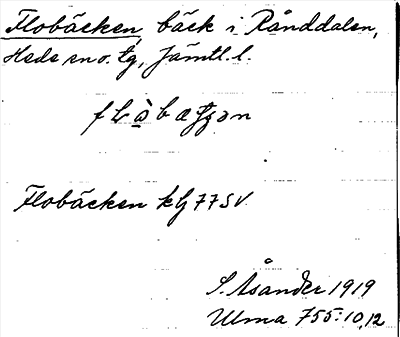 Flobäcken, bäck i Rånddalen,
Hede sn o. tg, Jämtl. l.
Flobäcken kg 77 SV.
S. Åsander 1919
Ulma 755:10,12